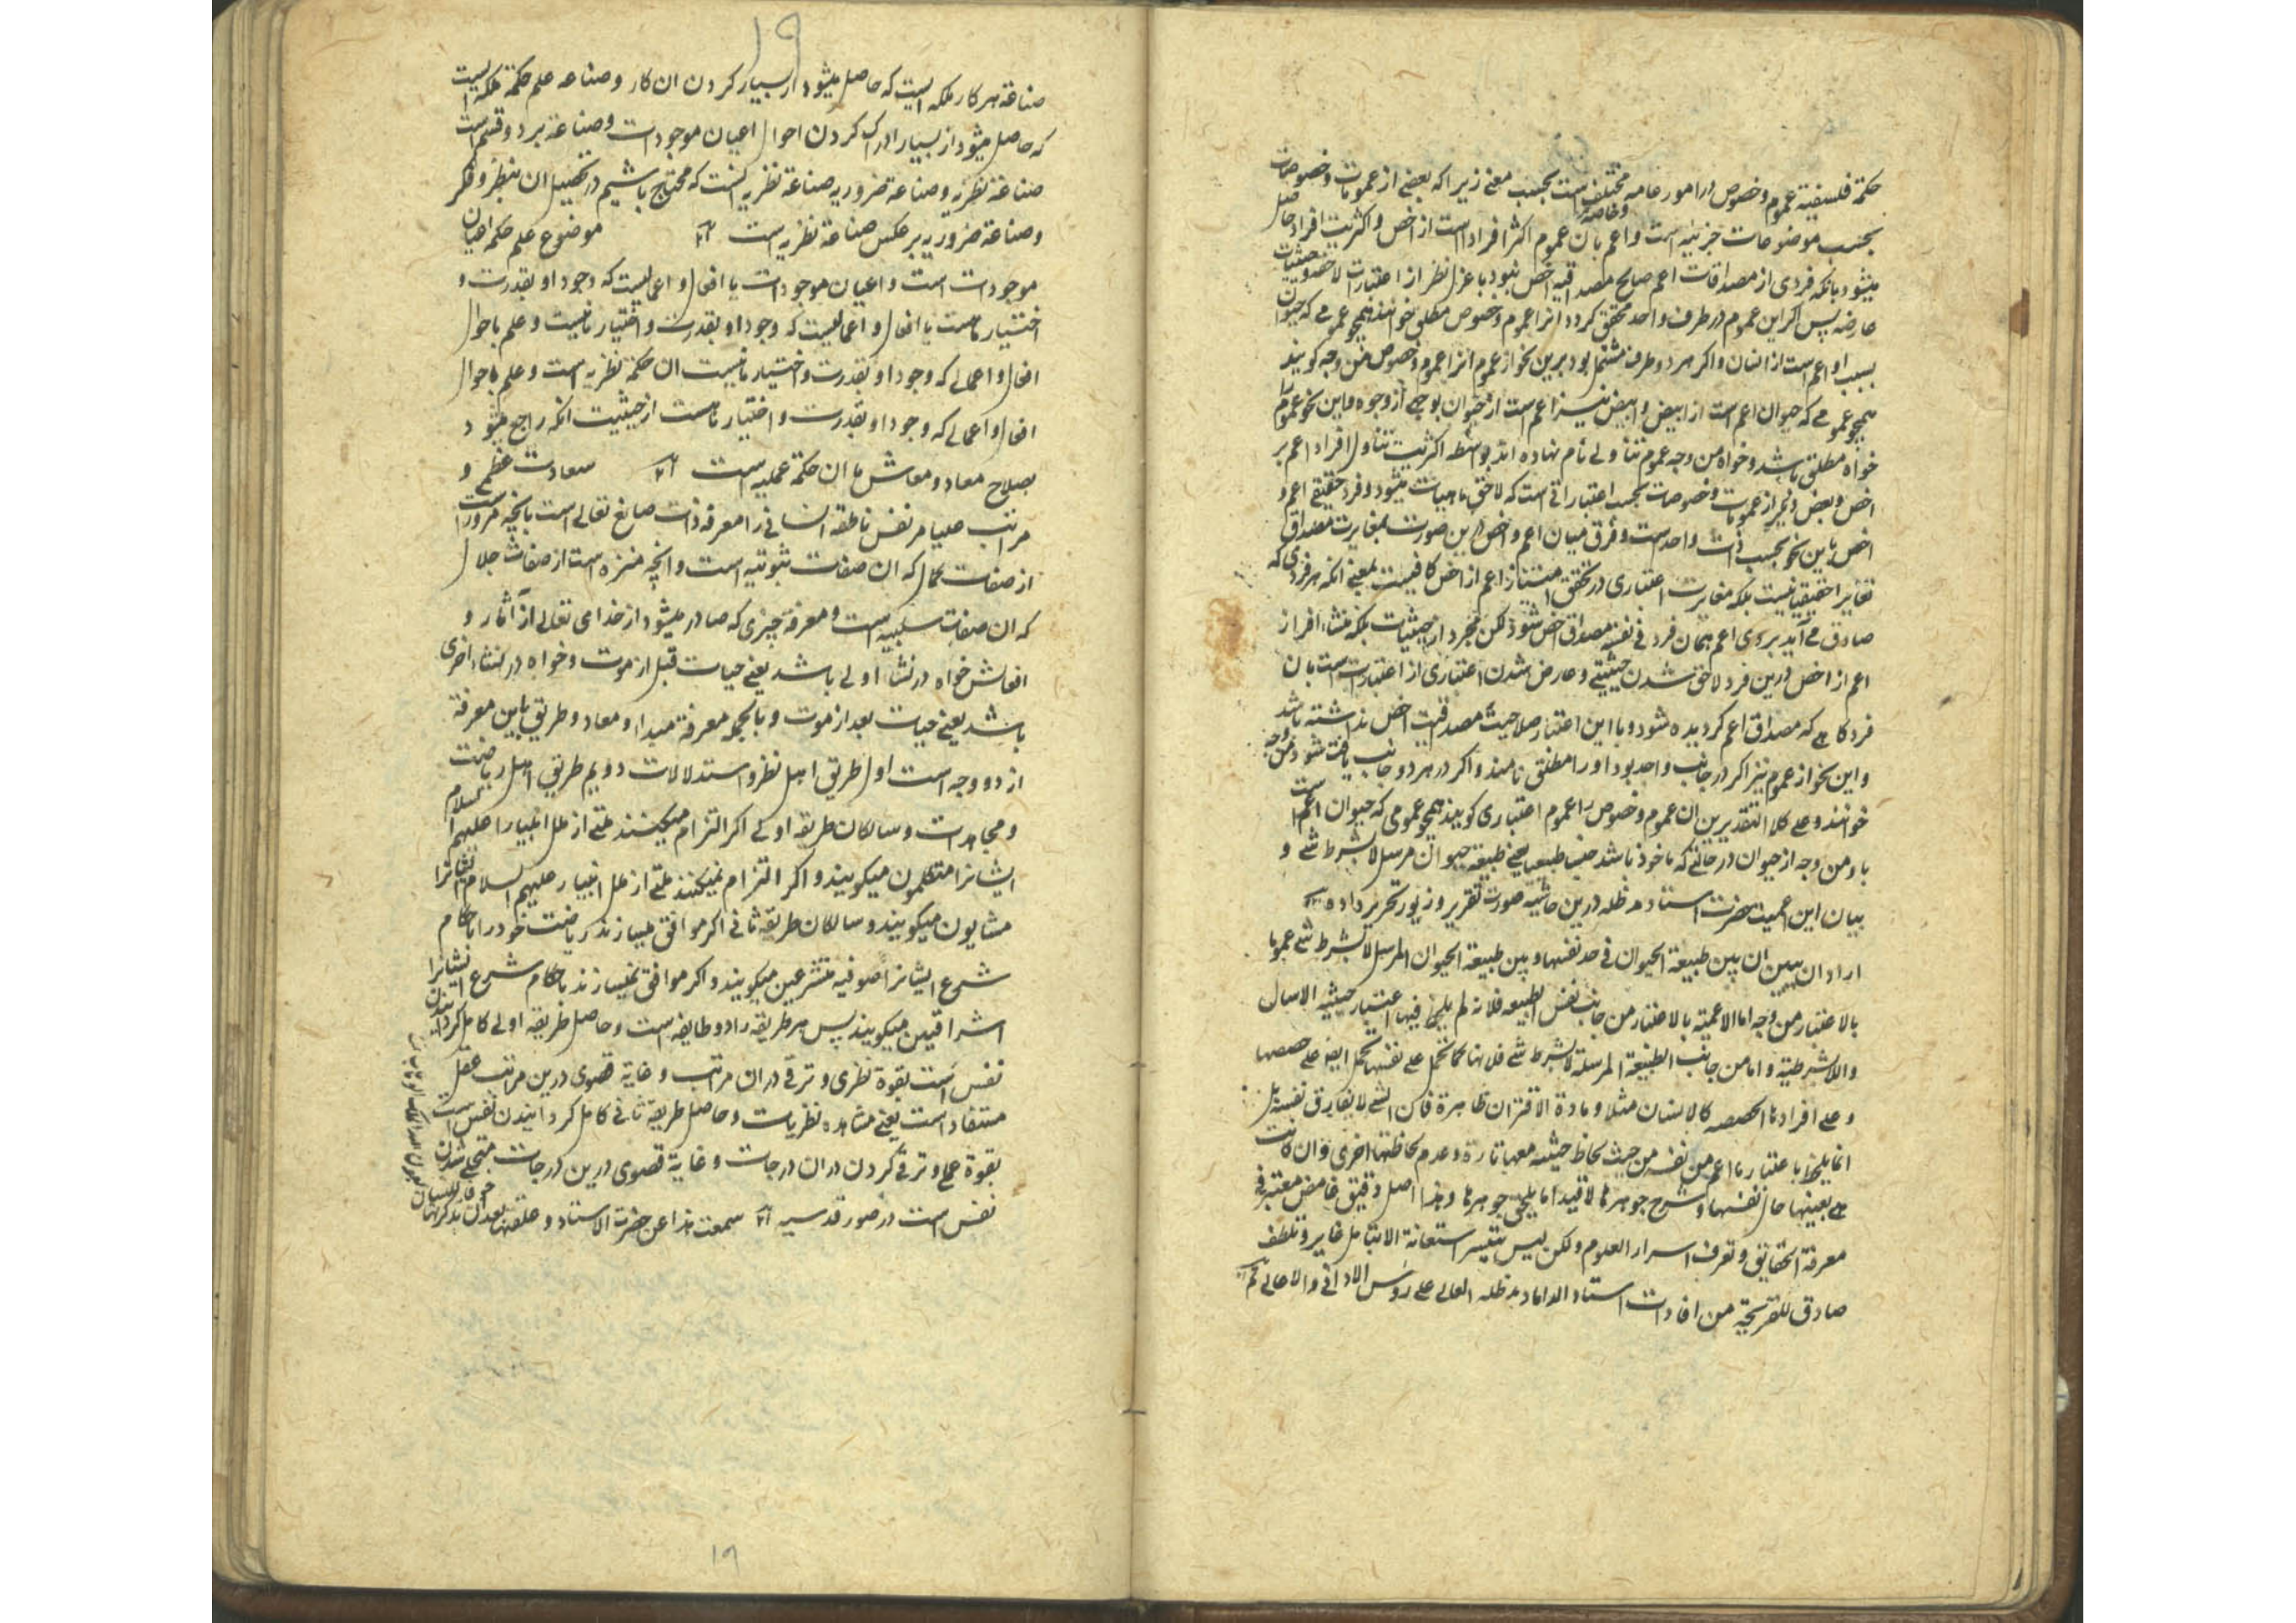 حکمة فلسفیة عموم و خصوص در امور عامه مختلف است بحسب معنی زیرا که بعضی از عمومات و خصوصات
بحسب موضوعات جزئیه است و اعم بان عموم اکثر افراد است از اخص و اکثریت افراد حاصل
میشود بانکه فردی از مصداقات اعم صالح مصداقیه اخص نبود با عزل نظر از اعتبارات لاحقه و حیثیات
عارضه پس اگر این عموم در طرف واحد متحقق گردد انرا عموم و خصوص مطلق خوانند همچو عمومی که حیوان
بسبب او اعم است از انسان و اگر هر دو طرف مشتمل بود برین نحو از عموم انرا عموم و خصوص من وجه گویند
همچو عمومی که حیوان اعم است از ابیض و ابیض نیز اعم است از حیوان بوجهی از وجوه و این نحو عموم را
خواه مطلق باشد و خواه من وجه عموم تناولی نام نهاده اند بواسطه اکثریت تناول افراد اعم بر
اخص و بعض دیگر از عمومات و خصوصات بحسب اعتباراتی است که لاحق ماهیات میشود و فرد حقیقی اعم و
اخص باین نحو بحسب ذات واحد است و فرق میان اعم و اخص درین صورت بمغایرت مصداق
تغایرا حقیقیا نیست بلکه مغایرت اعتباری در تحقق امتیاز اعم از اخص کافیست بمعنی انکه هر فردی که
صادق می آید بروی اعم همان فرد فی نفسه مصداق اخص شود لکن مجرد از حیثیات بلکه منشاء افراز
اعم از اخص درین فرد لاحق شدن حیثیتی و عارض شدن اعتباری از اعتبارات است بان
فرد کاهی که مصداق اعم گردیده شود و با این اعتبار صلاحیت مصداقیت اخص نداشته باشد
و این نحو از عموم نیز اگر در جانب واحد بود او را مطلق نامند و اگر در هر دو جانب یافت شود من وجه
خوانند و علی کلا التقدیرین ان عموم و خصوص را عموم اعتباری گویند همچو عمومی که حیوان اعم است
باو من وجه از حیوان در حالتی که ماخوذ باشد جنب طبیعیا یعنی طبیعة حیوان مرسل لا بشرط شی و
بیان این اعمیت حضرت استاد مد ظله درین حاشیه صورت تقریر و زیور تحریر داده
اراد ان یبین ان بین طبیعة الحیوان فی حد نفسها و بین طبیعة الحیوان المرسل لا بشرط شی عموما
بالاعتبار من وجه اما الاعمیة بالاعتبار من جانب نفس الطبیعه فلانه لم یلحظ فیها اعتبار حیثیه الارسال
واللا شرطیة و اما من جانب الطبیعة المرسلة لا بشرط شی فلانها کما تحمل علی نفسها تحمل ایضا علی حصصها
و علی افرادها الحصصه کالانسان مثلا و مادة الاقتران ظاهرة فان الشی لا یفارق نفسه بل
انما یلحظ باعتبار ما اعم من نفسه من حیث لحاظ حیثیه معها تارة و عدم لحاظها اخری و ان کانت
هی بعینها حال نفسها و شرح جوهرها لا قیدا ما یلحق جوهرها و هذا اصل دقیق غامض معتبر فی
معرفة الحقایق و تعرف اسرار العلوم و لکن لیس یتیسر استعانة الا بتامل غایر و تلطف
صادق للقریحة من افادات استاد الداماد مد ظله العالی علی روس الادانی و الاعالی
۱۹
صناعة هر کار ملکه ایست که حاصل میشود از بسیار کردن ان کار و صناعه علم حکمة ملکه ایست
که حاصل میشود از بسیار ادراک کردن احوال اعیان موجودات و صناعة بر دو قسم است
صناعة نظریه و صناعة ضروریه صناعة نظریه انست که محتاج باشیم در تحصیل ان بنظر و فکر
و صناعة ضروریه بر عکس صناعة نظریه است موضوع علم حکمه اعیان
موجودات است و اعیان موجودات یا افعال و اعمالیست که وجود او بقدرت و
اختیار ماست یا افعال و اعمالیست که وجود او بقدرت و اختیار ما نیست و علم باحوال
افعال و اعمالی که وجود او بقدرت و اختیار ما نیست ان حکمة نظریه است و علم باحوال
افعال و اعمالی که وجود او بقدرت و اختیار ماست از حیثیت انکه راجع میشود
بصلاح معاد و معاش ما ان حکمة عملیه است سعادت عظمی و
مراتب علیا مر نفس ناطقه انسانی را معرفة ذات صانع تعالی است بانچه مر او راست
از صفات کمال که ان صفات ثبوتیه است و انچه منزه است از صفات جلال
که ان صفات سلبیه است و معرفة چیزی که صادر میشود از خدای تعالی از آثار و
افعالش خواه در نشاء اولی باشد یعنی حیات قبل از موت و خواه در نشاء اخری
باشد یعنی حیات بعد از موت و بالجمله معرفة مبدا و معاد و طریق باین معرفة
از دو وجه است اول طریق اهل نظر و استدلالات دویم طریق اهل ریاضت
و مجاهدات و سالکان طریقه اولی اگر التزام میکنند ملتی از ملل انبیا را علیهم السلام
ایشانرا متکلمون میگویند و اگر التزام نمیکنند ملتی از ملل انبیا را علیهم السلام ایشانرا
مشایون میگویند و سالکان طریقه ثانی اگر موافق میسازند ریاضت خود را باحکام
شرع ایشانرا صوفیه متشرعین میگویند و اگر موافق نمیسازند باحکام شرع ایشانرا
اشراقیین میگویند پس هر طریقه را دو طایفه است و حاصل طریقه اولی کامل گردانیدن
نفس است بقوة نظری و ترقی در ان مراتب و غایة قصوی درین مراتب عقل
مستفاد است یعنی مشاهده نظریات و حاصل طریقه ثانی کامل گردانیدن نفس است
بقوة عملی و ترقی کردن در ان درجات و غایة قصوی درین درجات متجلی شدن
نفس است در صور قدسیه سمعت هذا عن حضرت الاستاد و علقتها بعد ان تذکرتها
خوفا للنسیان
۱۹